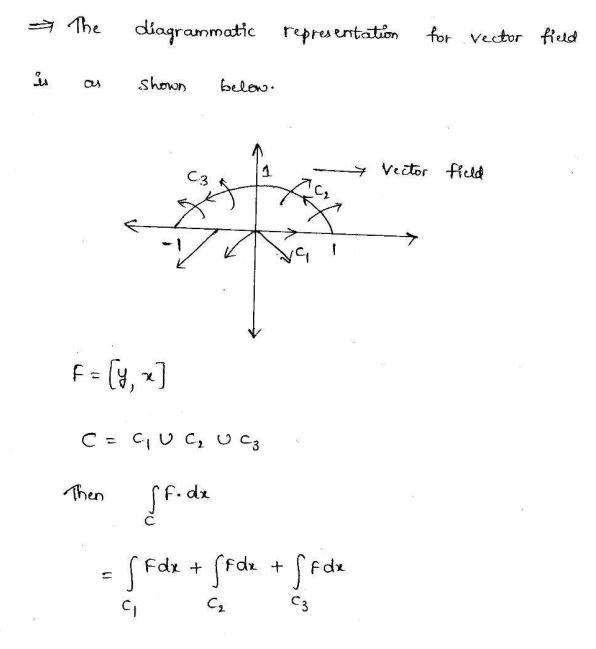 ⇒ The diagrammatic representation for vector field
is as shown below.
C3 1 → Vector field
C2
-1 C1 1
F = [y, x]
C = C1 ∪ C2 ∪ C3
Then ∫C F. dx
= ∫C1 Fdx + ∫C2 Fdx + ∫C3 Fdx